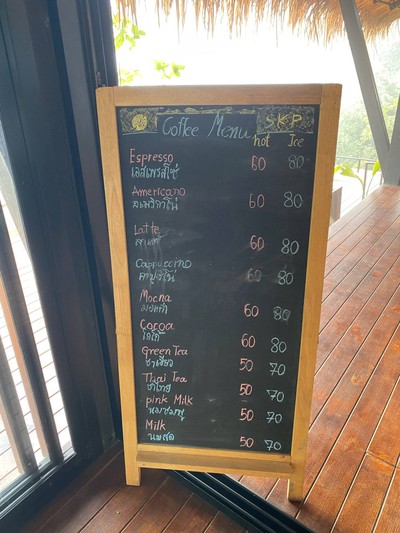 Coffee Menu SKP
hot Ice
Espresso 60 80
เอสเพรสโซ่
Americano 60 80
อเมริกาโน่
Latte 60 80
ลาเต้
Cappuccino 60 80
คาปูชิโน่
Mocha 60 80
มอคค่า
Cocoa 60 80
โกโก้
Green Tea 50 70
ชาเขียว
Thai Tea 50 70
ชาไทย
pink Milk 50 70
นมชมพู
Milk 50 70
นมสด